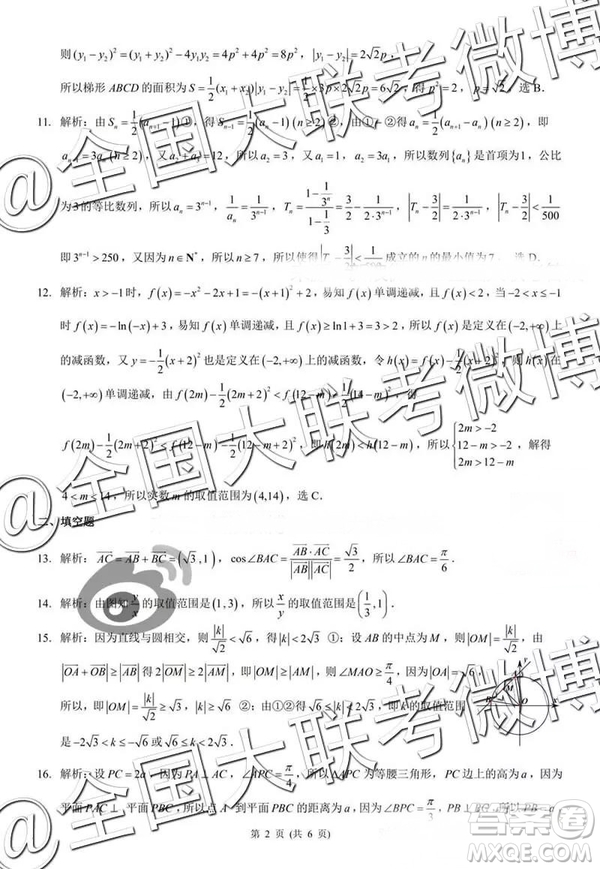 则(y₁-y₂)²=(y₁+y₂)²-4y₁y₂=4p²+4p²=8p²，|y₁-y₂|=2√2p，
所以梯形 ABCD 的面积为 S=1/2(x₁+x₂)|y₁-y₂|=1/2×3p×2√2p=6√2，即 p²=2，p=√2．选 B．
11. 解析：由 Sₙ=1/2(aₙ₊₁-1)①，得 Sₙ₋₁=1/2(aₙ-1)(n≥2)②，由①-②得 aₙ=1/2(aₙ₊₁-aₙ)(n≥2)，即
aₙ₊₁=3aₙ(n≥2)，又 a₂+ =12，所以 a₂=3，又 a₁=1，a₂=3a₁，所以数列{aₙ}是首项为1，公比
为3的等比数列，所以 aₙ=3ⁿ⁻¹，1/aₙ=1/3ⁿ⁻¹，Tₙ=(1-1/3ⁿ)/(1-1/3)=3/2-1/(2·3ⁿ⁻¹)，|Tₙ-3/2|=1/(2·3ⁿ⁻¹)，|Tₙ-3/2|<1/500
即3ⁿ⁻¹>250，又因为 n∈N*，所以 n≥7，所以使得|Tₙ-3/2|< 成立的 n 的最小值为7．选 D．
12. 解析：x>-1时，f(x)=-x²-2x+1=-(x+1)²+2，易知 f(x)单调递减，且 f(x)<2，当-2<x≤-1
时 f(x)=-ln(-x)+3，易知 f(x)单调递减，且 f(x)≥ln1+3=3>2，所以 f(x)是定义在(-2,+∞)上
的减函数，又 y=-1/2(x+2)²也是定义在(-2,+∞)上的减函数，令 h(x)=f(x)-1/2(x+2)²，则 h(x)在
(-2,+∞)单调递减，由 f(2m)-1/2(2m+2)²<f(12-m)-1/2(14-m)²，得
f(2m)-1/2(2m+2)²<f(12-m)-1/2(12-m+2)²，即 h(2m)<h(12-m)，所以{2m>-2 12-m>-2 2m>12-m，解得
4<m<14，所以实数 m 的取值范围为(4,14)，选 C．
二、填空题
13. 解析：AC=AB+BC=(√3,1)，cos∠BAC=AB·AC/|AB||AC|=√3/2，所以∠BAC=π/6．
14. 解析：由图知 y/x 的取值范围是(1,3)，所以 x/y 的取值范围是(1/3,1)．
15. 解析：因为直线与圆相交，则|k|/√2<√6，得|k|<2√3 ①；设 AB 的中点为 M，则|OM|=|k|/√2，由
|OA+OB|≥|AB|得2|OM|≥2|AM|，即|OM|≥|AM|，所以∠MAO≥π/4，因为|OM|≥√3，
所以，即|OM|=|k|/√2≥√3，|k|≥√6 ②；由①②得 k 的取值范围
是-2√3<k≤-√6或√6≤k<2√3．
16. 解析：设 PC=2a，因为 PA⊥AC，∠APC=π/4，所以△APC 为等腰三角形，PC 边上的高为 a，因为
平面 PAC⊥平面 PBC，所以点 A 到平面 PBC 的距离为 a，因为∠BPC=π/3，PB⊥BC，所以 PB=a
第 2 页 (共 6 页)
@全国大联考微博
@全国大联考微博
@全国大联考微博
答案圈
MXQE.COM